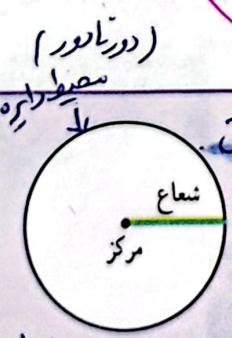 (دورتادور)
محیط دایره
شعاع
مرکز